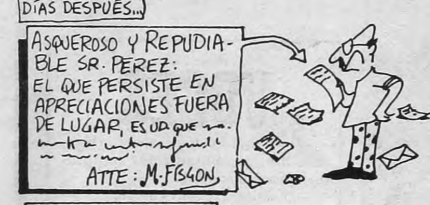 DÍAS DESPUÉS...
ASQUEROSO Y REPUDIA-
BLE SR. PEREZ:
EL QUE PERSISTE EN
APRECIACIONES FUERA
DE LUGAR, ES UD QUE
ATTE: M. FISGON,